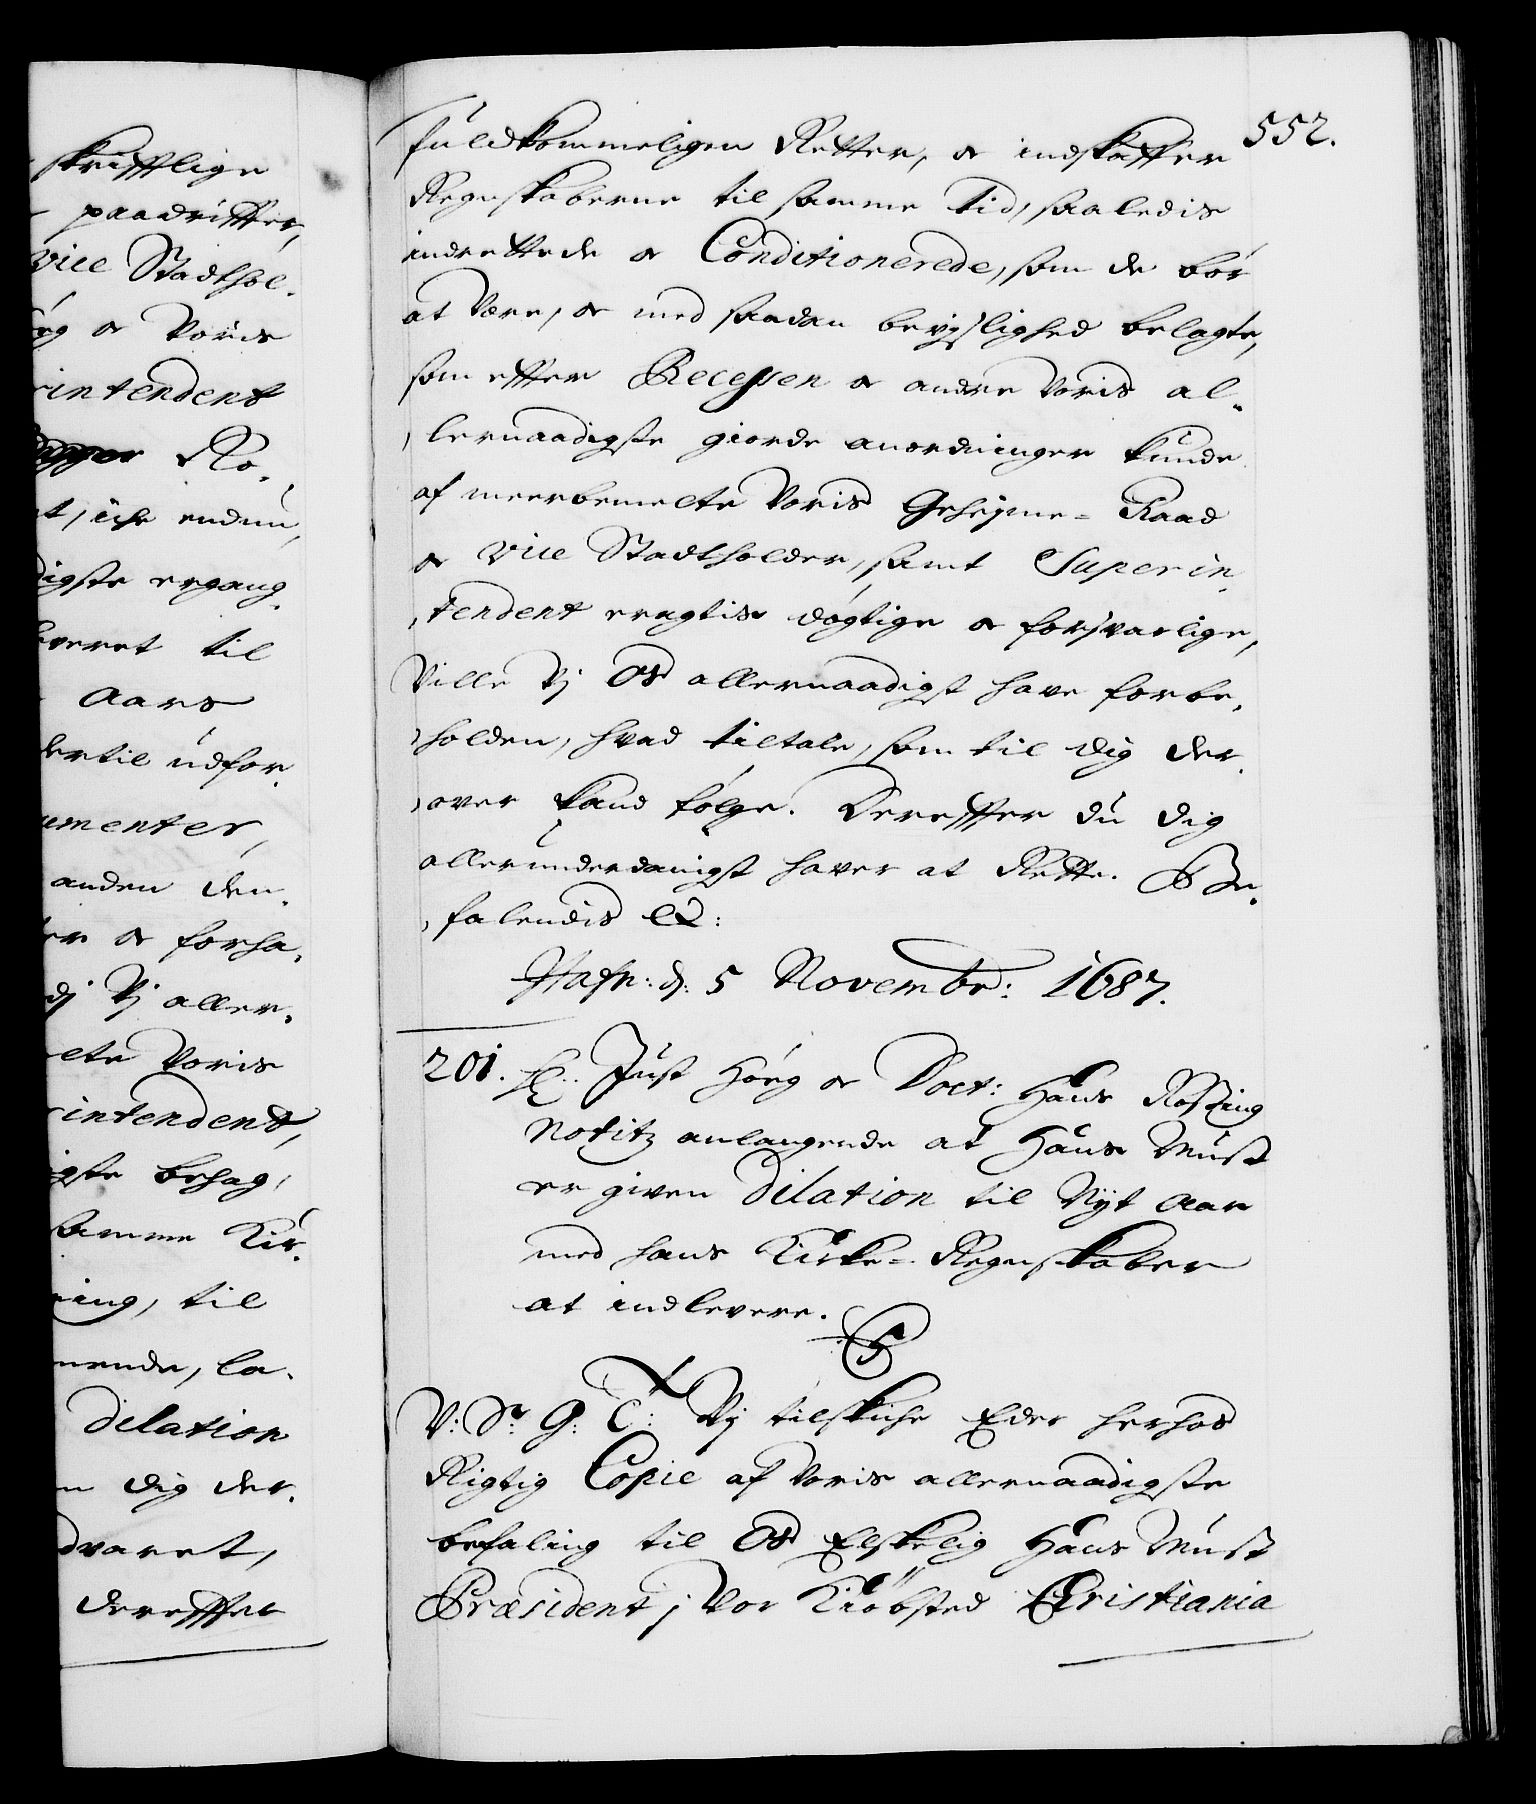 skrifftlige
paadrifter,
vice Stadthol-
og Voris
rintendent
Ro-
t, iche endnu,
digste ergang-
leveret til
Aars
dertil udfor-
umenter,
anden den-
er og forha-
dj Vj aller-
elte Voris
rintendent,
igste behag,
samme Kir-
ning, til
nende, la-
Dilation
n dig der-
dvaret,
Derefter
552.
fuldkommeligen Retter, og indskaffer
Regnskaberne til samme tid, saaledis
indrettede og Conditionerede, som de bör
at Være, og med saadan bevjslighed belagte,
som efter Recessen og andre Voris al-
lernaadigste giorde anordninger kunde
af meerbemelte Voris Geheime-Raad
og Vice Stadtholder, samt Superin-
tendent eragtis dögtige og forsvarlige,
Ville Vj Os allernaadigst have forbe-
holden, hvad tiltale, som til dig der-
over kand fölge. Derefter du dig
allerunderdanigst haver at Rette. Be-
falendis etc:
Hafn: d: 5 Novembr: 1687.
201. H: Just Höeg og Doct: Hans Rosing
Notitz anlangende at Hans Must
er given Dilation til Nyt Aar
med hans Kirke-Regnskaber
at indlevere.
C5
V: Sr G: T: Vj tilskiche Eder herhos
Rigtig Copie af Voris allernaadigste
befaling til Os Elskelig Hans Must
Præsident j Vor Kiöbsted Christiania